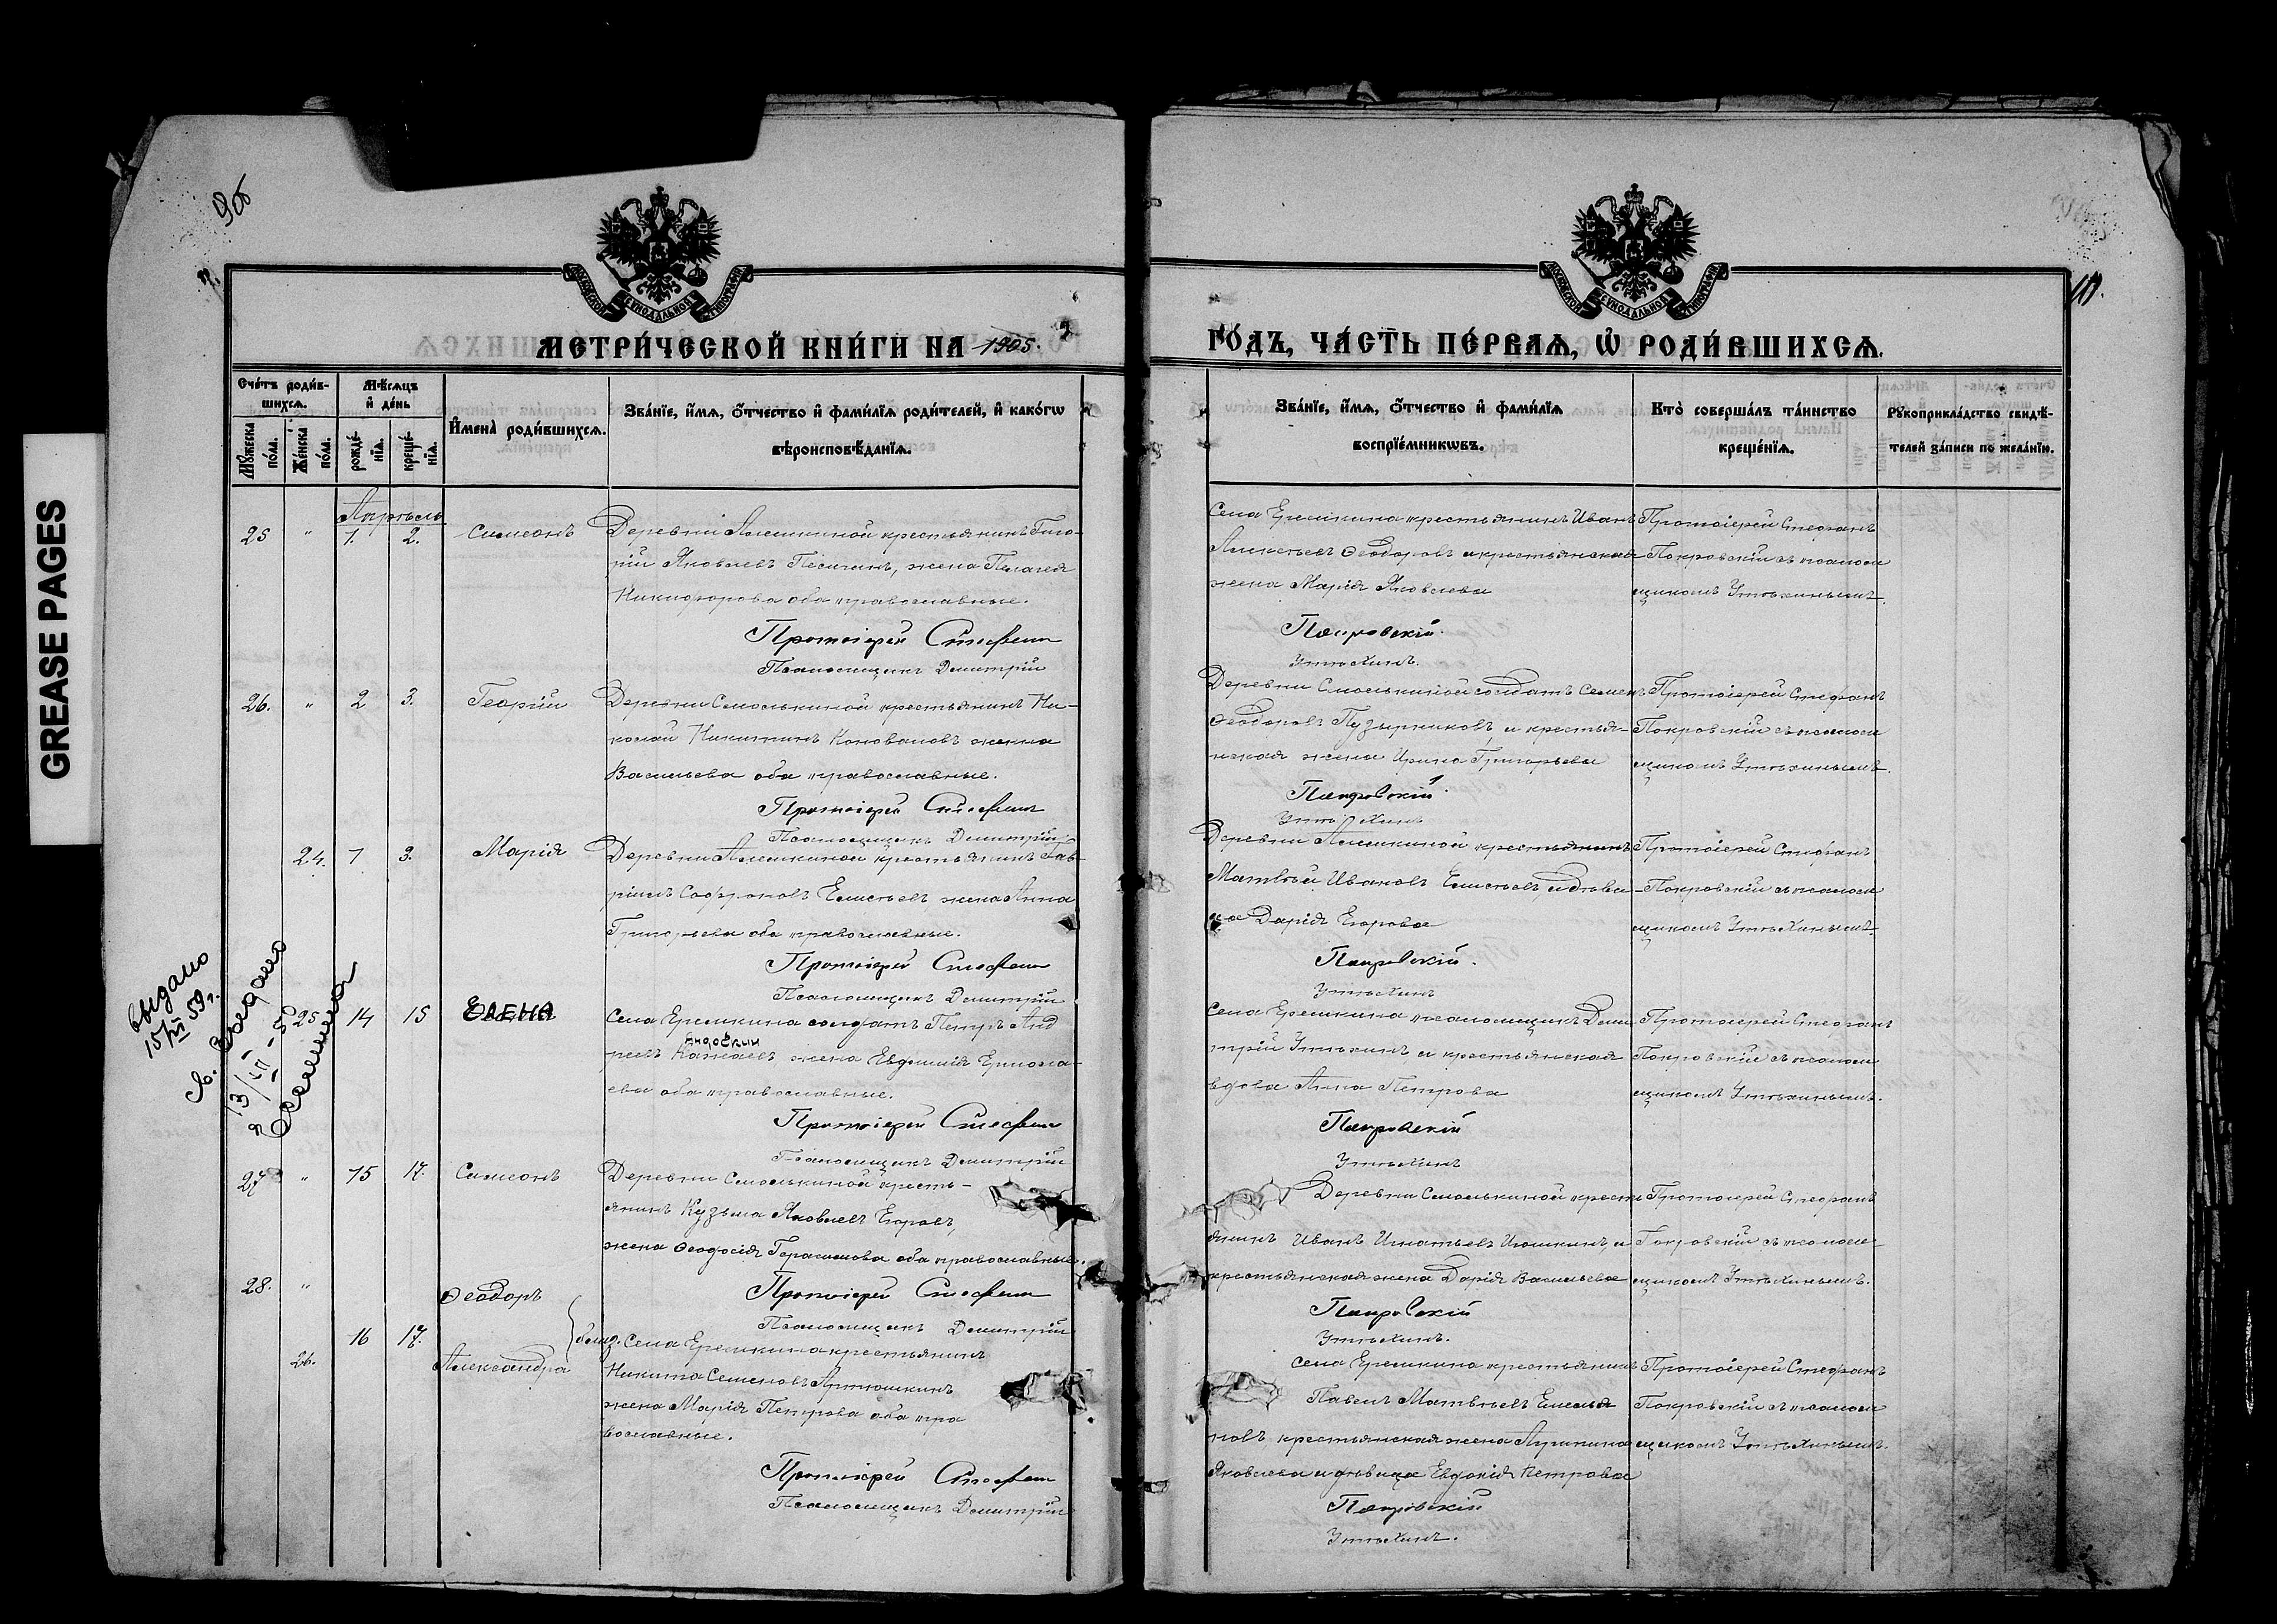 GREASE PAGES
9об
10.
МОСКОВСКОЙ СѴНОДАЛЬНОЙ ТИПОГРАФІИ
МОСКОВСКОЙ СѴНОДАЛЬНОЙ ТИПОГРАФІИ
МЕТРИ́ЧЕСКОЙ КНИ́ГИ НА 1905.
ГО́ДЪ, ЧА́СТЬ ПЕ́РВАЯ, Ѡ҆ РОДИ́ВШИХСЯ.
Сче́тъ роди́в-
шихся.
Мꙋ́жеска по́ла.
Же́нска по́ла.
Мѣ́сяцъ
и҆ де́нь
рожде́-
нїя.
креще́-
нїя.
И҆мена̀ роди́вшихся.
Зва́нїе, и҆́мя, ѻ҆́тчество и҆ фами́лїя роди́телей, и҆ како́гѡ
вѣроисповѣ́данїя.
Зва́нїе, и҆́мя, ѻ҆́тчество и҆ фами́лїя
воспрїе́мникѡвъ.
Кто̀ соверша́лъ та́инство
креще́нїя.
Рꙋкоприкла́дство свидѣ́-
телей за́писи по жела́нїю.
Апрѣль
25 " 1. 2. Симеонъ
Деревни Алешкиной крестьянинъ
рій Яковлевъ жена Пелагея
Никифорова оба православные.
Протоіерей Стефанъ
Псаломщикъ Димитрій
Села Еремкина крестьянинъ Иванъ
Алексѣевъ Ѳеодоровъ и крестьянская
жена Марія Яковлева
Покровскій.
Утѣхинъ.
Протоіерей Стефанъ
Покровскій съ псалом
щикомъ Утѣхинымъ.
26. " 2 3. Георгій
Деревни Смолькиной крестьянинъ Ни-
колай Никитинъ Коноваловъ жена
Васильева оба православные.
Протоіерей Стефанъ
Псаломщикъ Димитрій
Деревни Смолькиной солдатъ Семенъ
Ѳеодоровъ Пузырниковъ, и крестья-
нская жена Ирина Григорьева
Покровскій
Утѣхинъ
Протоіерей Стефанъ
Покровскій съ псалом
щикомъ Утѣхинымъ.
24. 1 3. Марія
Деревни Алешкиной крестьянинъ Гав-
ріилъ Софроновъ Елисѣевъ, жена Анна
Григорьева оба православные.
Протоіерей Стефанъ
Псаломщикъ Димитрій
Деревни Алешкиной крестьянинъ
Матвѣй Ивановъ Елисѣевъ, и дѣви-
ца Дарія Егорова
Покровскій.
Утѣхинъ
Протоіерей Стефанъ
Покровскій съ псалом
щикомъ Утѣхинымъ.
выдано
15/VI 59г.
св. выдано
13/VII - 5
25 14 15 ЕЛЕНА
Села Еремкина солдатъ Петръ Анд
реевъ жена Евдокія Ермола-
ева оба православные.
Протоіерей Стефанъ
Псаломщикъ Димитрій
Села Еремкина псаломщикъ Дими
трій Утѣхинъ и крестьянская
вдова Анна Петрова
Покровскій
Утѣхинъ
Протоіерей Стефанъ
Покровскій съ псалом
щикомъ Утѣхинымъ.
27 " 15 17. Симеонъ
Деревни Смолькиной кресть-
янинъ Кузьма Яковлевъ Егоровъ,
жена Ѳеодосія Герасимова оба православные.
Протоіерей Стефанъ
Псаломщикъ Димитрій
Деревни Смолькиной кресть
янинъ Иванъ Игнатьевъ и
крестьянская жена Дарія Васильева
Покровскій
Утѣхинъ.
Протоіерей Стефанъ
Покровскій съ псалом
щикомъ Утѣхинымъ.
28. " Ѳеодоръ
16 17.
26. Александра
близ. Села Еремкина крестьянинъ
Никита Семеновъ Артюшкинъ
жена Марія Петрова оба пра
вославные.
Протоіерей Стефанъ
Псаломщикъ Димитрій
Села Еремкина крестьянинъ
Павелъ Матвѣевъ Емелья
новъ крестьянская жена
Яковлева и дѣвица Евдокія Петрова
Покровскій
Утѣхинъ.
Протоіерей Стефанъ
Покровскій съ псалом
щикомъ Утѣхинымъ.